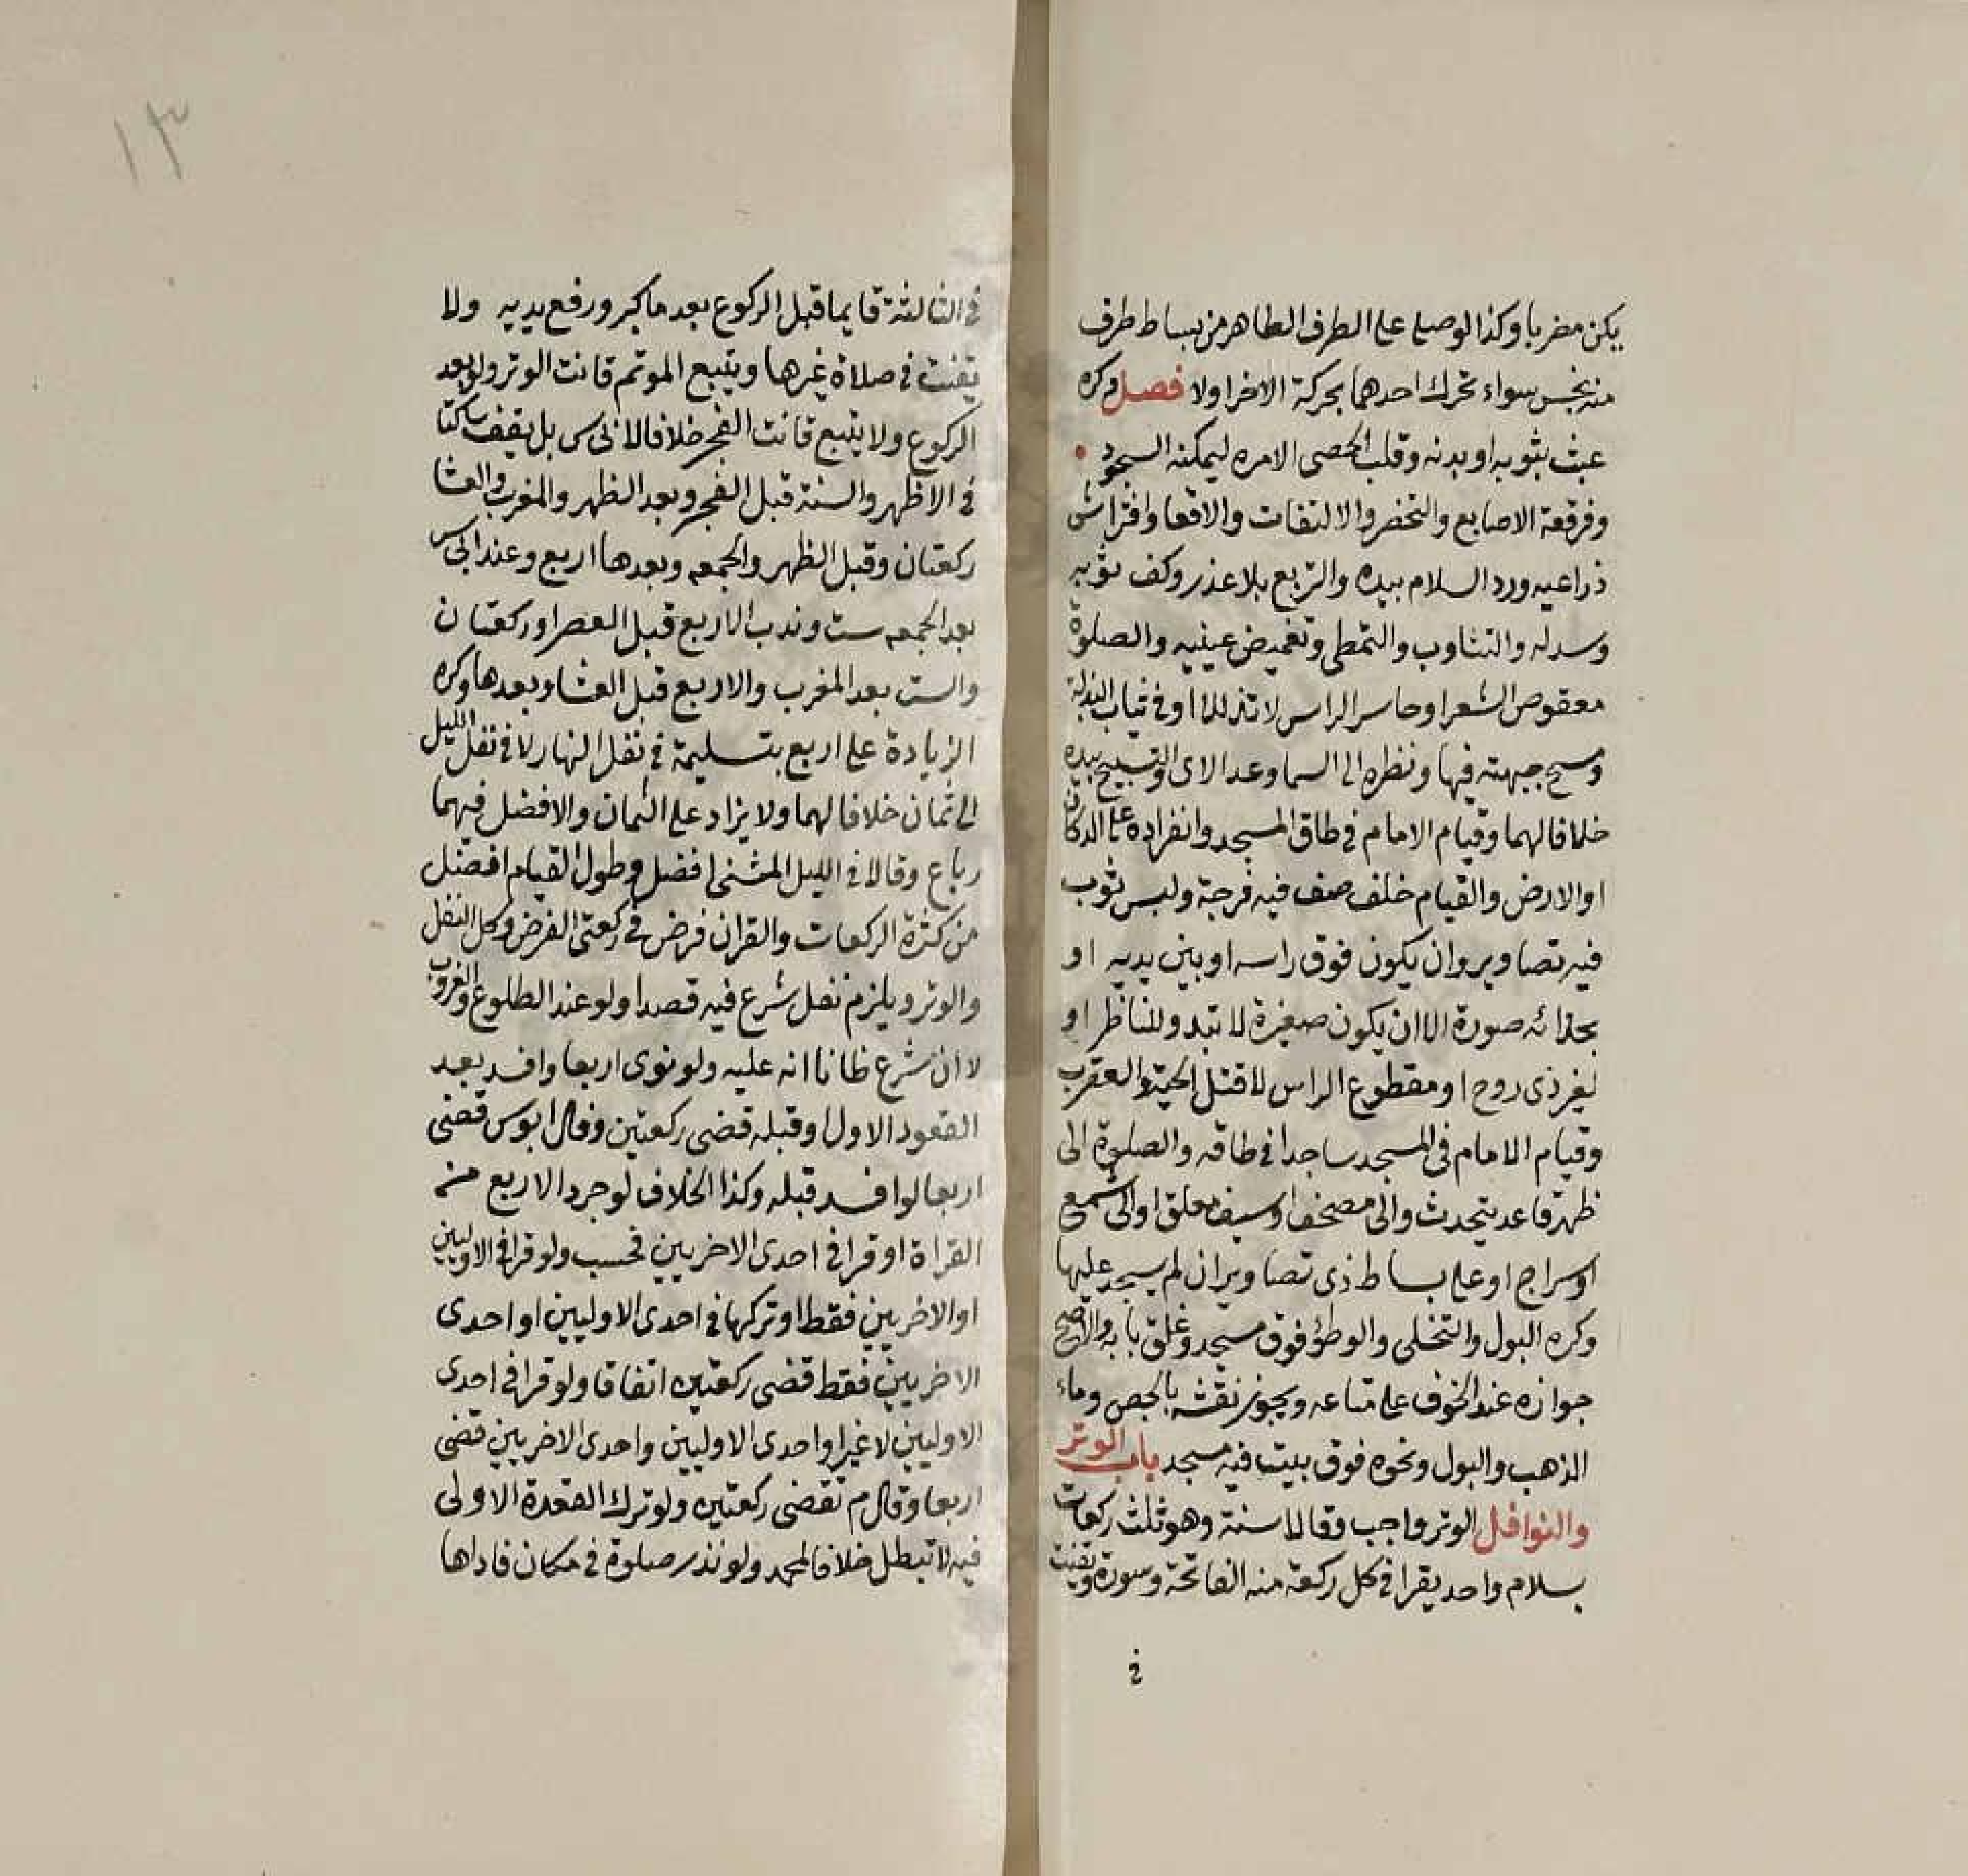 يكن مضربا وكذا لو صلى على الطرف الطاهر من بساط طرف
منه نجس سواء تحرك احدهما بحركة الاخر اولا فصل وكره
عبث بثوبه او بدنه وقلب الحصى الا مره ليمكنه السجود
وفرقعة الاصابع والتخصر والالتفات والاقعا وافتراش
ذراعيه ورد السلام بيده والتربع بلا عذر وكف ثوبه
وسدله والتثاوب والتمطي وتغميض عينيه والصلوة
معقوص الشعر او حاسر الراس لا تذللا او في ثياب البذلة
ومسح جبهته فيها ونظره الى السما وعد الاى والتسبيح بيده
خلافا لهما وقيام الامام في طاق المسجد وانفراده على الدكان
او الارض والقيام خلف صف فيه فرجة ولبس ثوب
فيه تصاوير وان يكون فوق راسه او بين يديه او
بحذائه صورة الا ان يكون صغيرة لا تبدو للناظر او
لغير ذى روح او مقطوع الراس لا قتل الحية والعقرب
وقيام الامام فى المسجد ساجدا في طاقه والصلوة الى
ظهر قاعد يتحدث والى مصحف او سيف معلق او الى شمع
او سراج او على بساط ذى تصاوير ان لم يسجد عليها
وكره البول والتخلى والوطؤ فوق مسجد وغلق بابه والاصح
جوازه عند الخوف على متاعه ويجوز نقشه بالجص وماء
الذهب والبول ونحوه فوق بيت فيه مسجد باب الوتر
والنوافل الوتر واجب وقالا سنة وهو ثلث ركعات
بسلام واحد يقرا في كل ركعة منه الفاتحة وسورة ويقنت
في
١٣
في الثالثة قايما قبل الركوع بعد ما كبر ورفع يديه ولا
يقنت في صلاة غيرها ويتبع الموتم قانت الوتر ولو بعد
الركوع ولا يتبع قانت الفجر خلافا لابى س بل يقف ساكتا
في الاظهر والسنة قبل الفجر وبعد الظهر والمغرب والعشا
ركعتان وقبل الظهر والجمعه وبعدها اربع وعند ابى س
بعد الجمعه ست وندب الاربع قبل العصر او ركعتان
والست بعد المغرب والاربع قبل العشا وبعدها وكره
الزيادة على اربع بتسليمة في نفل النهار لا في نفل الليل
الى ثمان خلافا لهما ولا يزاد على الثمان والافضل فيهما
رباع وقالا في الليل المثنى افضل وطول القيام افضل
من كثرة الركعات والقران فرض في ركعتى الفرض وكل النفل
والوتر ويلزم نفل شرع فيه قصدا ولو عند الطلوع والغروب
لا ان شرع ظانا انه عليه ولو نوى اربعا وافسد بعد
القعود الاول او قبله قضى ركعتين وقال ابوس قضى
اربعا لو افسد قبله وكذا الخلاف لو جرد الاربع من
القراة او قرا في احدى الاخريين فحسب ولو قرا في الاوليين
او الاخريين فقط او تركها في احدى الاوليين او احدى
الاخريين فقط قضى ركعتين اتفاقا ولو قرا في احدى
الاوليين لا غير او احدى الاوليين واحدى الاخريين قضى
اربعا وقال م تقضى ركعتين ولو ترك القعدة الاولى
فيه لا تبطل خلافا لمحمد ولو نذر صلوة في مكان فاداها